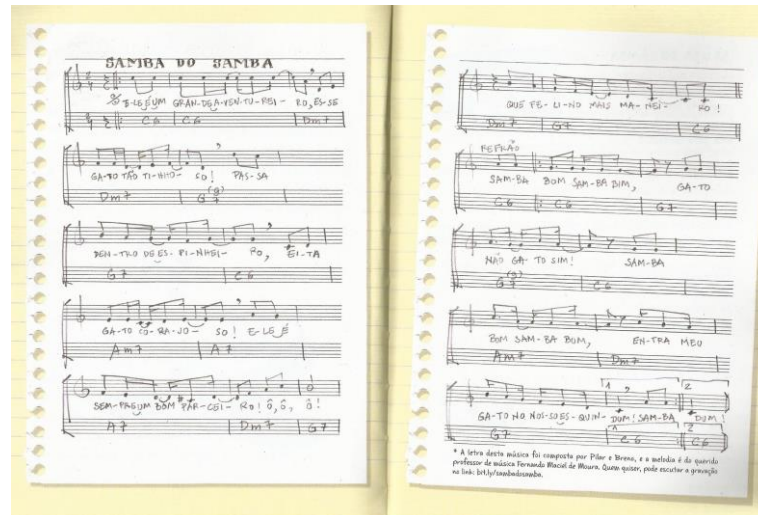 SAMBA DO SAMBA
E-LE É UM GRAN-DE A-VEN-TU-REI- RO, ES-SE
C6 C6 Dm7
GA-TO TÃO TI-NHO- SO! PAS-SA
Dm7 G7(9)
DEN-TRO DE ES-PI-NHEI- RO, EI-TA
G7 C6
GA-TO CO-RA-JO- SO! E-LE É
Am7 A7
SEM-PRE UM BOM PAR-CEI- RO! Ô, Ô, Ô!
A7 Dm7 G7
QUE FE-LI-NO MAIS MA-NEI- RO!
Dm7 G7 C6
REFRÃO
SAM-BA BOM SAM-BA BIM, GA-TO
C6 C6 G7
NÃO GA-TO SIM! SAM-BA
G7(9) C6
BOM SAM-BA BUM, EN-TRA MEU
Am7 Dm7
1 2
GA-TO NO NOI-SES-QUIN- DUM! SAM-BA DUM!
G7 C6 2 C6
* A letra desta música foi composta por Pilar e Breno, e a melodia é do querido
professor de música Fernando Maciel de Moura. Quem quiser, pode escutar a gravação
no link: bit.ly/sambadosamba.